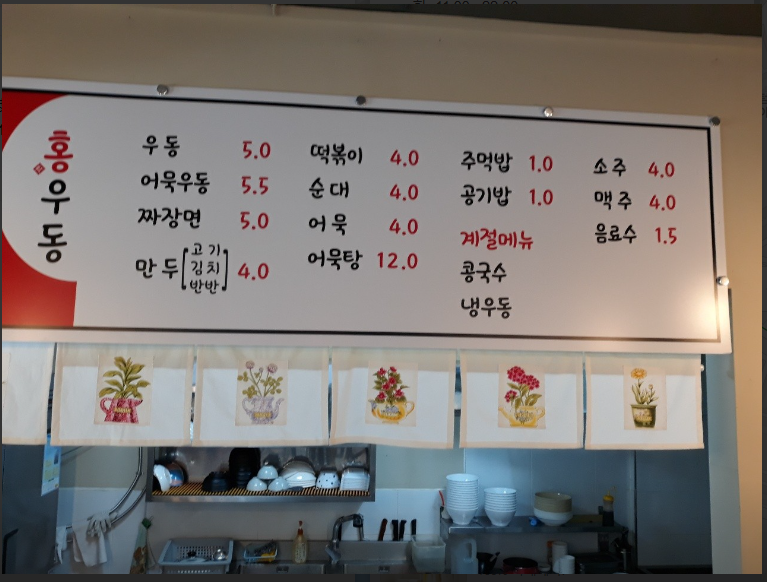 홍우동
우동 5.0
어묵우동 5.5
짜장면 5.0
만두[고기 김치 반반] 4.0
떡볶이 4.0
순대 4.0
어묵 4.0
어묵탕 12.0
주먹밥 1.0
공기밥 1.0
계절메뉴
콩국수
냉우동
소주 4.0
맥주 4.0
음료수 1.5